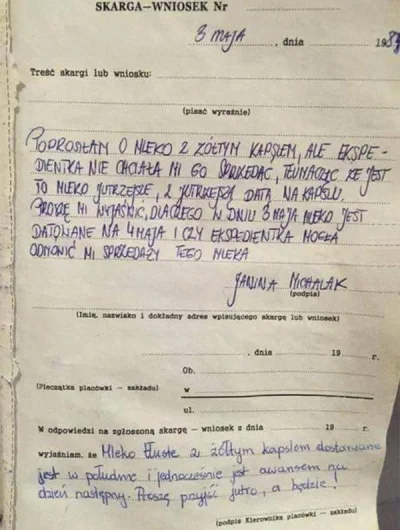 SKARGA—WNIOSEK Nr
3 MAJA, dnia 198
Treść skargi lub wniosku:
(pisać wyraźnie)
POPROSIŁAM O MLEKO Z ŻÓŁTYM KAPSLEM, ALE EKSPE-
DIENTKA NIE CHCIAŁA MI GO SPRZEDAĆ, TŁUMACZĄC ŻE JEST
TO MLEKO JUTRZEJSZE, Z JUTRZEJSZĄ DATĄ NA KAPSLU.
PROSZĘ MI WYJAŚNIĆ, DLACZEGO W DNIU 3 MAJA MLEKO JEST
DATOWANE NA 4 MAJA I CZY EKSPEDIENTKA MOGŁA
ODMÓWIĆ MI SPRZEDAŻY TEGO MLEKA
JANINA MICHALAK
(podpis)
(Imię, nazwisko i dokładny adres wpisującego skargę lub wniosek)
, dnia 19 r.
Ob.
(Pieczątka placówki — zakładu) w
ul.
W odpowiedzi na zgłoszoną skargę — wniosek z dnia 19 r.
wyjaśniam, że Mleko tłuste z żółtym kapslem dostarczane
jest w południe i jednocześnie jest awansem na
dzień następny. Proszę przyjść jutro, a będzie!
(podpis Kierownika placówki — zakładu)